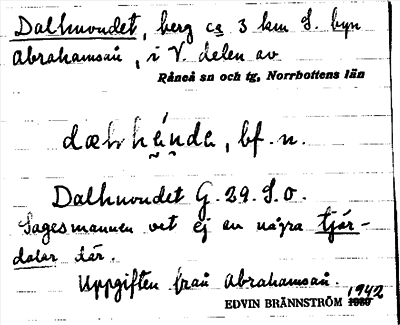 Dalhuvudet, berg ca 3 km S. byn
Abrahamsån, i V. delen av
Råneå sn och tg, Norrbottens län
bf. n.
Dalhuvudet G. 29. S.O.
Sagesmannen vet ej en några tjär-
dalar där.
Uppgiften från Abrahamsån.
EDVIN BRÄNNSTRÖM 1942